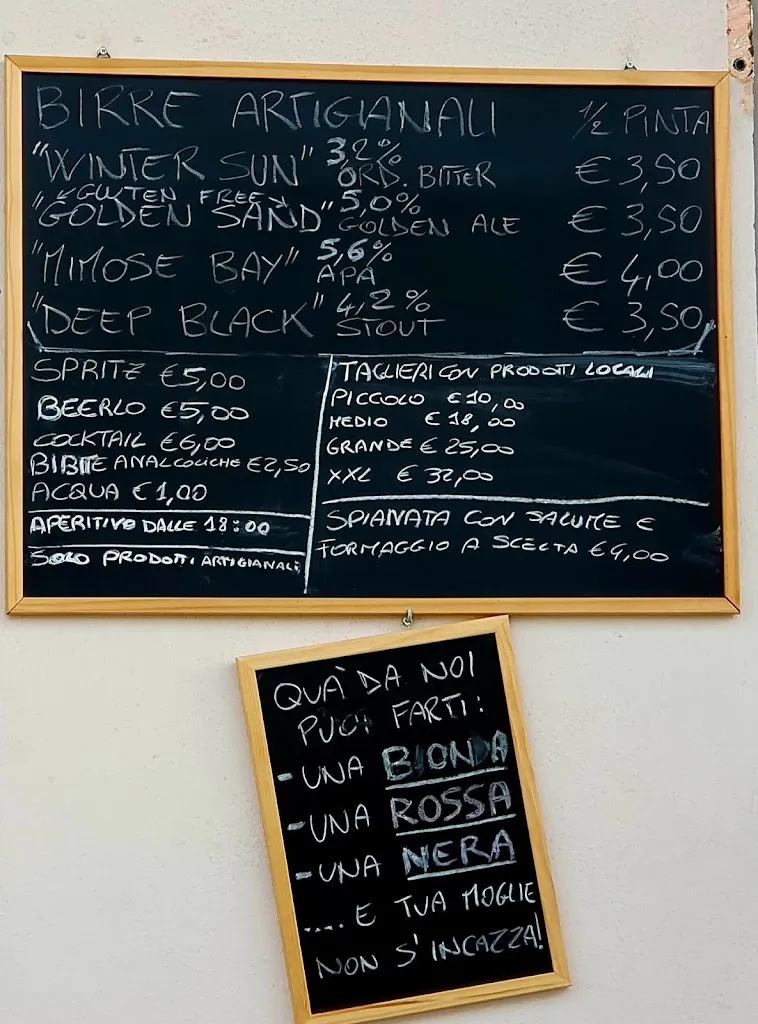 BIRRE ARTIGIANALI 1/2 PINTA
"WINTER SUN" 3,2% ORD. BITTER € 3,50
↙GLUTEN FREE↘
"GOLDEN SAND" 5,0% GOLDEN ALE € 3,50
"MIMOSE BAY" 5,6% APA € 4,00
"DEEP BLACK" 4,2% STOUT € 3,50
SPRITZ €5,00
BEERLO €5,00
COCKTAIL €6,00
BIBITE ANALCOLICHE €2,50
ACQUA €1,00
APERITIVO DALLE 18:00
SOLO PRODOTTI ARTIGIANALI
TAGLIERI CON PRODOTTI LOCALI
PICCOLO €10,00
MEDIO €18,00
GRANDE €25,00
XXL €32,00
SPIANATA CON SALUME E
FORMAGGIO A SCELTA
QUÀ DA NOI
PUOI FARTI:
- UNA BIONDA
- UNA ROSSA
- UNA NERA
.... E TUA MOGLIE
NON S'INCAZZA!